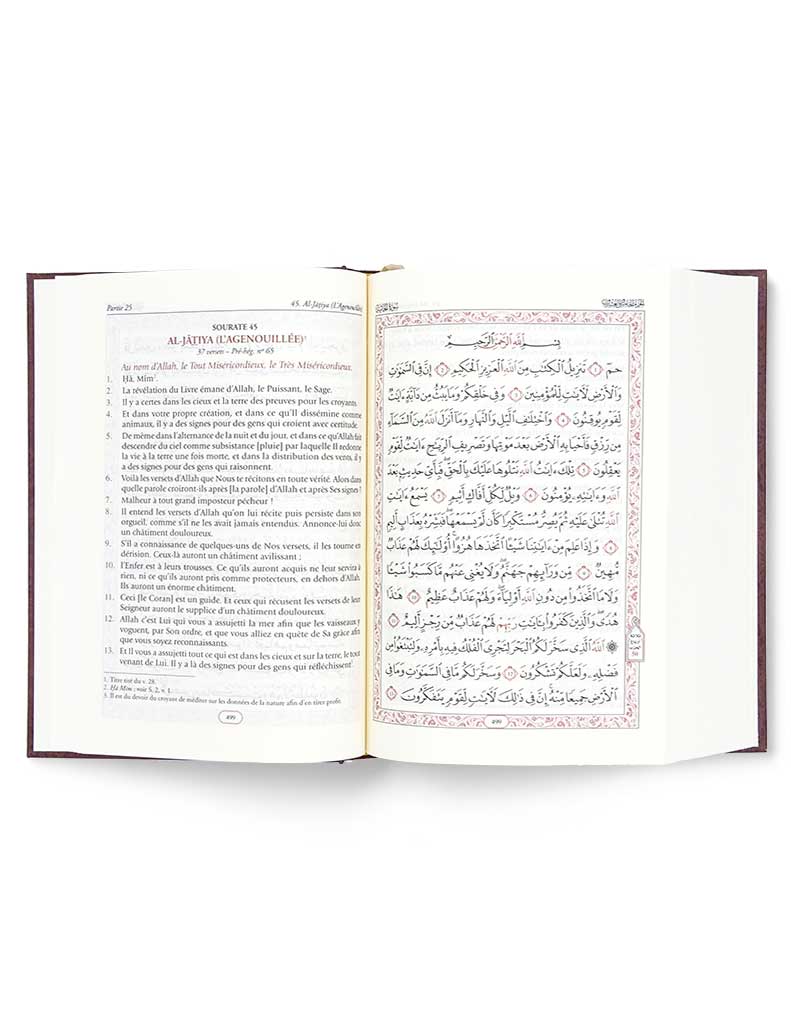 Partie 25
45. Al-Jāṯiya (L'Agenouillée)
SOURATE 45
AL-JĀṮIYA (L'AGENOUILLÉE)¹
37 versets – Pré-hég. nº 65
Au nom d'Allah, le Tout Miséricordieux, le Très Miséricordieux.
1. Ḥâ, Mîm².
2. La révélation du Livre émane d'Allah, le Puissant, le Sage.
3. Il y a certes dans les cieux et la terre des preuves pour les croyants.
4. Et dans votre propre création, et dans ce qu'Il dissémine comme
animaux, il y a des signes pour des gens qui croient avec certitude.
5. De même dans l'alternance de la nuit et du jour, et dans ce qu'Allah fait
descendre du ciel comme subsistance [pluie] par laquelle Il redonne
la vie à la terre une fois morte, et dans la distribution des vents, il y
a des signes pour des gens qui raisonnent.
6. Voilà les versets d'Allah que Nous te récitons en toute vérité. Alors dans
quelle parole croiront-ils après [la parole] d'Allah et après Ses signes ?
7. Malheur à tout grand imposteur pécheur !
8. Il entend les versets d'Allah qu'on lui récite puis persiste dans son
orgueil, comme s'il ne les avait jamais entendus. Annonce-lui donc
un châtiment douloureux.
9. S'il a connaissance de quelques-uns de Nos versets, il les tourne en
dérision. Ceux-là auront un châtiment avilissant ;
10. l'Enfer est à leurs trousses. Ce qu'ils auront acquis ne leur servira à
rien, ni ce qu'ils auront pris comme protecteurs, en dehors d'Allah.
Ils auront un énorme châtiment.
11. Ceci [le Coran] est un guide. Et ceux qui récusent les versets de leur
Seigneur auront le supplice d'un châtiment douloureux.
12. Allah c'est Lui qui vous a assujetti la mer afin que les vaisseaux y
voguent, par Son ordre, et que vous alliez en quête de Sa grâce afin
que vous soyez reconnaissants.
13. Et Il vous a assujetti tout ce qui est dans les cieux et sur la terre, le tout
venant de Lui. Il y a là des signes pour des gens qui réfléchissent³.
1. Titre tiré du v. 28.
2. Ḥâ Mîm : voir S. 2, v. 1.
3. Il est du devoir du croyant de méditer sur les données de la nature afin d'en tirer profit.
499
بِسْمِ اللَّهِ الرَّحْمَٰنِ الرَّحِيمِ
حمٓ ۝١ تَنزِيلُ الْكِتَٰبِ مِنَ اللَّهِ الْعَزِيزِ الْحَكِيمِ ۝٢ إِنَّ فِي السَّمَٰوَٰتِ
وَالْأَرْضِ لَءَايَٰتٍ لِّلْمُؤْمِنِينَ ۝٣ وَفِي خَلْقِكُمْ وَمَا يَبُثُّ مِن دَآبَّةٍ ءَايَٰتٌ
لِّقَوْمٍ يُوقِنُونَ ۝٤ وَاخْتِلَٰفِ اللَّيْلِ وَالنَّهَارِ وَمَآ أَنزَلَ اللَّهُ مِنَ السَّمَآءِ
مِن رِّزْقٍ فَأَحْيَا بِهِ الْأَرْضَ بَعْدَ مَوْتِهَا وَتَصْرِيفِ الرِّيَٰحِ ءَايَٰتٌ لِّقَوْمٍ
يَعْقِلُونَ ۝٥ تِلْكَ ءَايَٰتُ اللَّهِ نَتْلُوهَا عَلَيْكَ بِالْحَقِّ فَبِأَيِّ حَدِيثٍ بَعْدَ
اللَّهِ وَءَايَٰتِهِ يُؤْمِنُونَ ۝٦ وَيْلٌ لِّكُلِّ أَفَّاكٍ أَثِيمٍ ۝٧ يَسْمَعُ ءَايَٰتِ
اللَّهِ تُتْلَىٰ عَلَيْهِ ثُمَّ يُصِرُّ مُسْتَكْبِرًا كَأَن لَّمْ يَسْمَعْهَا فَبَشِّرْهُ بِعَذَابٍ أَلِيمٍ
۝٨ وَإِذَا عَلِمَ مِنْ ءَايَٰتِنَا شَيْـًٔا اتَّخَذَهَا هُزُوًا أُولَٰٓئِكَ لَهُمْ عَذَابٌ
مُّهِينٌ ۝٩ مِّن وَرَآئِهِمْ جَهَنَّمُ وَلَا يُغْنِي عَنْهُم مَّا كَسَبُوا شَيْـًٔا
وَلَا مَا اتَّخَذُوا مِن دُونِ اللَّهِ أَوْلِيَآءَ وَلَهُمْ عَذَابٌ عَظِيمٌ ۝١٠ هَٰذَا
هُدًى وَالَّذِينَ كَفَرُوا بِـَٔايَٰتِ رَبِّهِمْ لَهُمْ عَذَابٌ مِّن رِّجْزٍ أَلِيمٌ ۝١١
۞ اللَّهُ الَّذِي سَخَّرَ لَكُمُ الْبَحْرَ لِتَجْرِيَ الْفُلْكُ فِيهِ بِأَمْرِهِ وَلِتَبْتَغُوا مِن
فَضْلِهِ وَلَعَلَّكُمْ تَشْكُرُونَ ۝١٢ وَسَخَّرَ لَكُم مَّا فِي السَّمَٰوَٰتِ وَمَا فِي
الْأَرْضِ جَمِيعًا مِّنْهُ إِنَّ فِي ذَٰلِكَ لَءَايَٰتٍ لِّقَوْمٍ يَتَفَكَّرُونَ ۝١٣
499